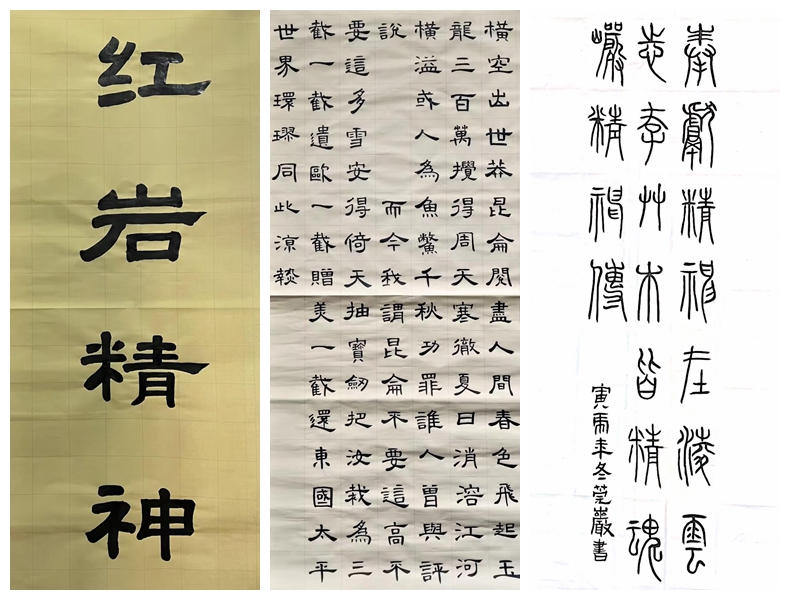 红岩精神
橫空出世莽昆侖閱盡人間春色飛起玉
龍三百萬攪得周天寒徹夏日消溶江河
橫溢或人為魚鱉千秋功罪誰人曾與評
說
而今我謂昆侖不要這高不
要這多雪安得倚天抽寶劍把汝裁為三
截一截遺歐一截贈美一截還東國太平
世界環璆同此涼熱
奉獻精神凌雲
志艸木皆精魂
巖精神傳
寅虎年冬巖書